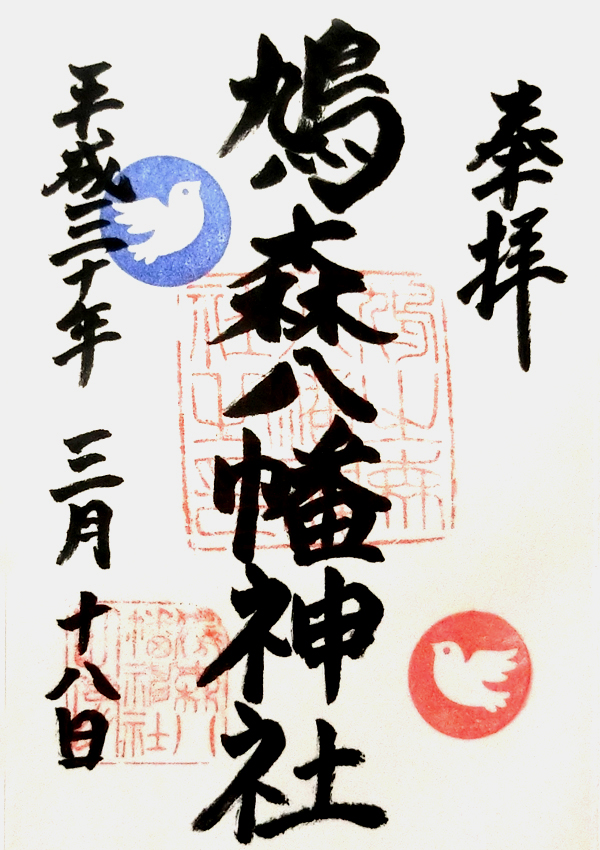 奉拝
鳩森八幡神社
平成三十年 三月 十八日